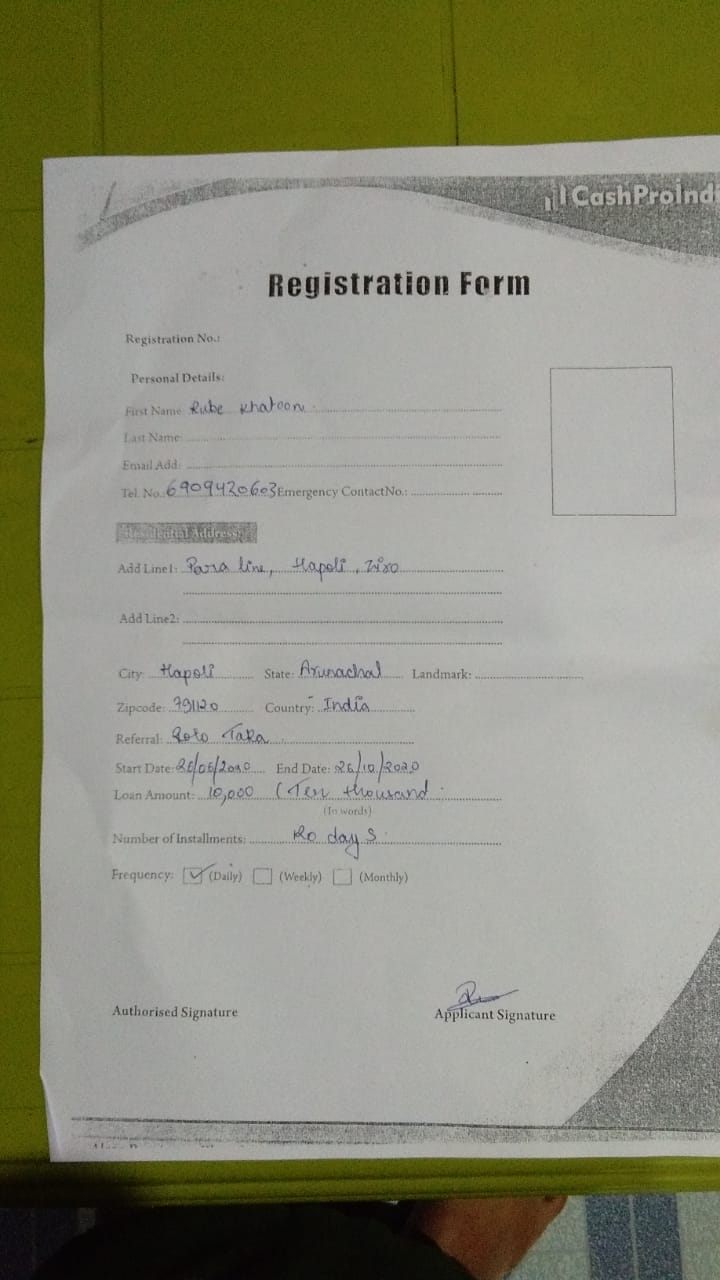 CashProIndi
Registration Form
Registration No.:
Personal Details:
First Name Rube Khatoon
Last Name:
Email Add:
Tel. No.: 6909420603 Emergency ContactNo.:
Residential Address:
Add Line1: Para line, Hapoli, Ziro
Add Line2:
City: Hapoli State: Arunachal Landmark:
Zipcode: 791120 Country: India
Referral: Taka
Start Date: End Date: 26/10/2020
Loan Amount: 10,000 (Ten thousand
(In words)
Number of Installments: days
Frequency: (Daily) (Weekly) (Monthly)
Authorised Signature Applicant Signature